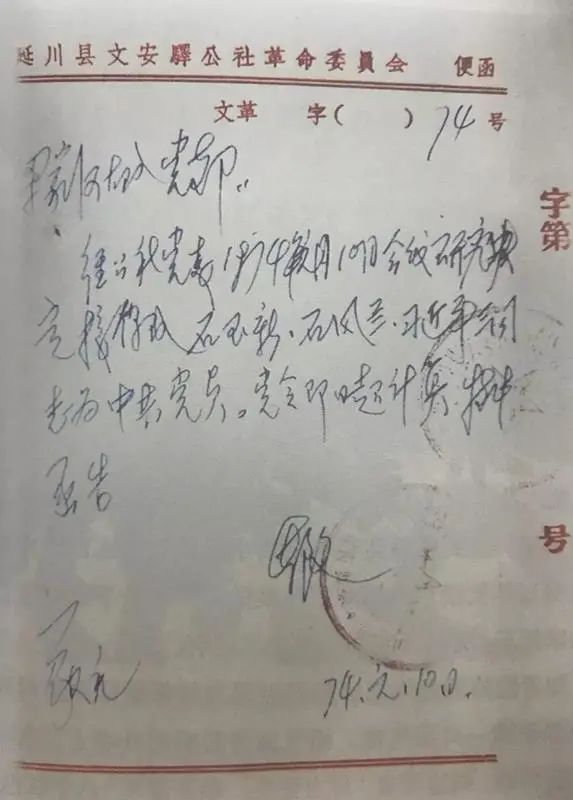 延川县文安驛公社革命委員会 便函
文革 字( ) 74 号
梁家河大队党支部：
经公社党委1974年元月10日会议研究决
定接收 石玉新、石凤兰、习近平 同
志为中共党员。党令即日起计算，特此
函告
74.元.10日.
此
致礼
字第
号